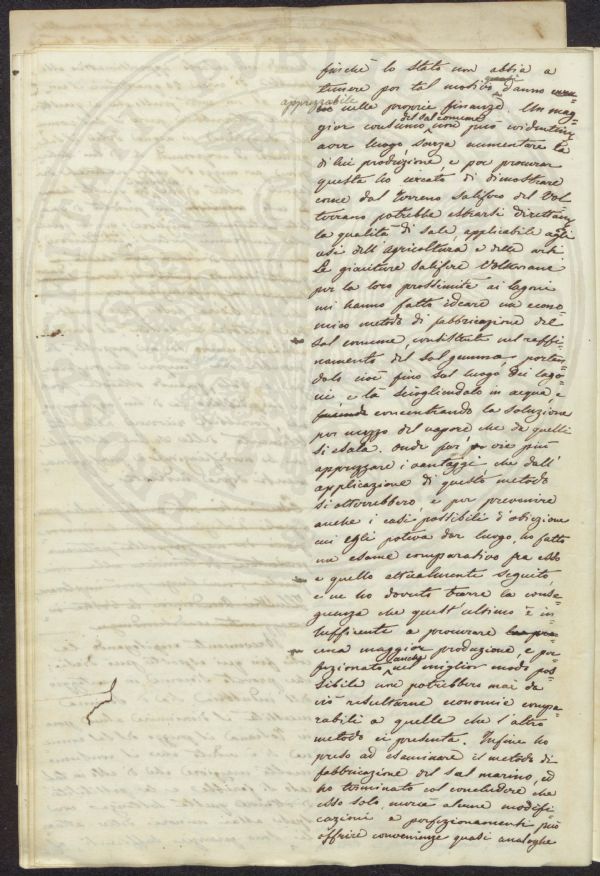 finchè lo Stato non abbia a
temere per tal motivo quasi danno
apprezzabile nelle proprie finanze. Un mag-
gior consumo del sal comune non può evidentem
aver luogo senza aumentare la
di lui produzione, e per procurar
questa ho cercato di dimostrare
come dal terreno salifero del Vol
terrano potrebbe estrarsi direttam
la qualità di sale, applicabile agli
usi dell'agricoltura e delle arti.
Le giaciture salifere Volterrane
per la loro prossimità ai lagoni
mi hanno fatto ideare un econo-
mico metodo di fabbricazione del
sal comune, consistente nel raffi-
namento del sal gemma, portan-
dolo cioè fino sul luogo dei lago-
ni, e là sciogliendolo in acqua, e
concentrando la soluzione
per mezzo del vapore che da quelli
si esala. Onde far vie più
apprezzare i vantaggi che dall'
applicazione di questo metodo
si otterrebbero, e per prevenire
anche i casi possibili d'obiezione
cui egli poteva dar luogo, ho fatto
un esame comparativo fra esso
e quello attualmente seguito,
e ne ho dovuto trarre la conse-
guenza che quest'ultimo è in-
sufficiente a procurare
una maggior produzione, e per-
fezionato anche nel miglior modo pos-
sibile non potrebbero mai da
ciò resultarne economie compa-
rabili a quelle che l'altro
metodo ci presenta. Infine ho
preso ad esaminare il metodo di
fabbricazione del sal marino, ed
ho terminato col concludere che
esso solo, mercè alcune modifi
cazioni e perfezionamenti può
offrire convenienze quasi analoghe